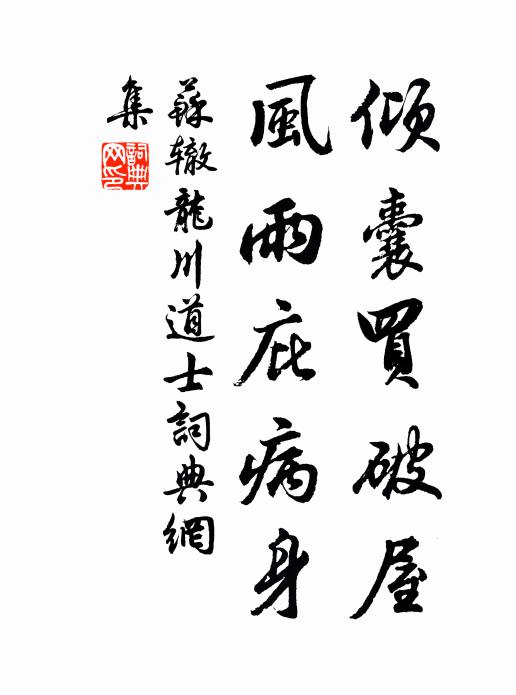 傾囊買破屋
風雨庇病身
蘇辙龍川道士詞典網
集
詞典
网印